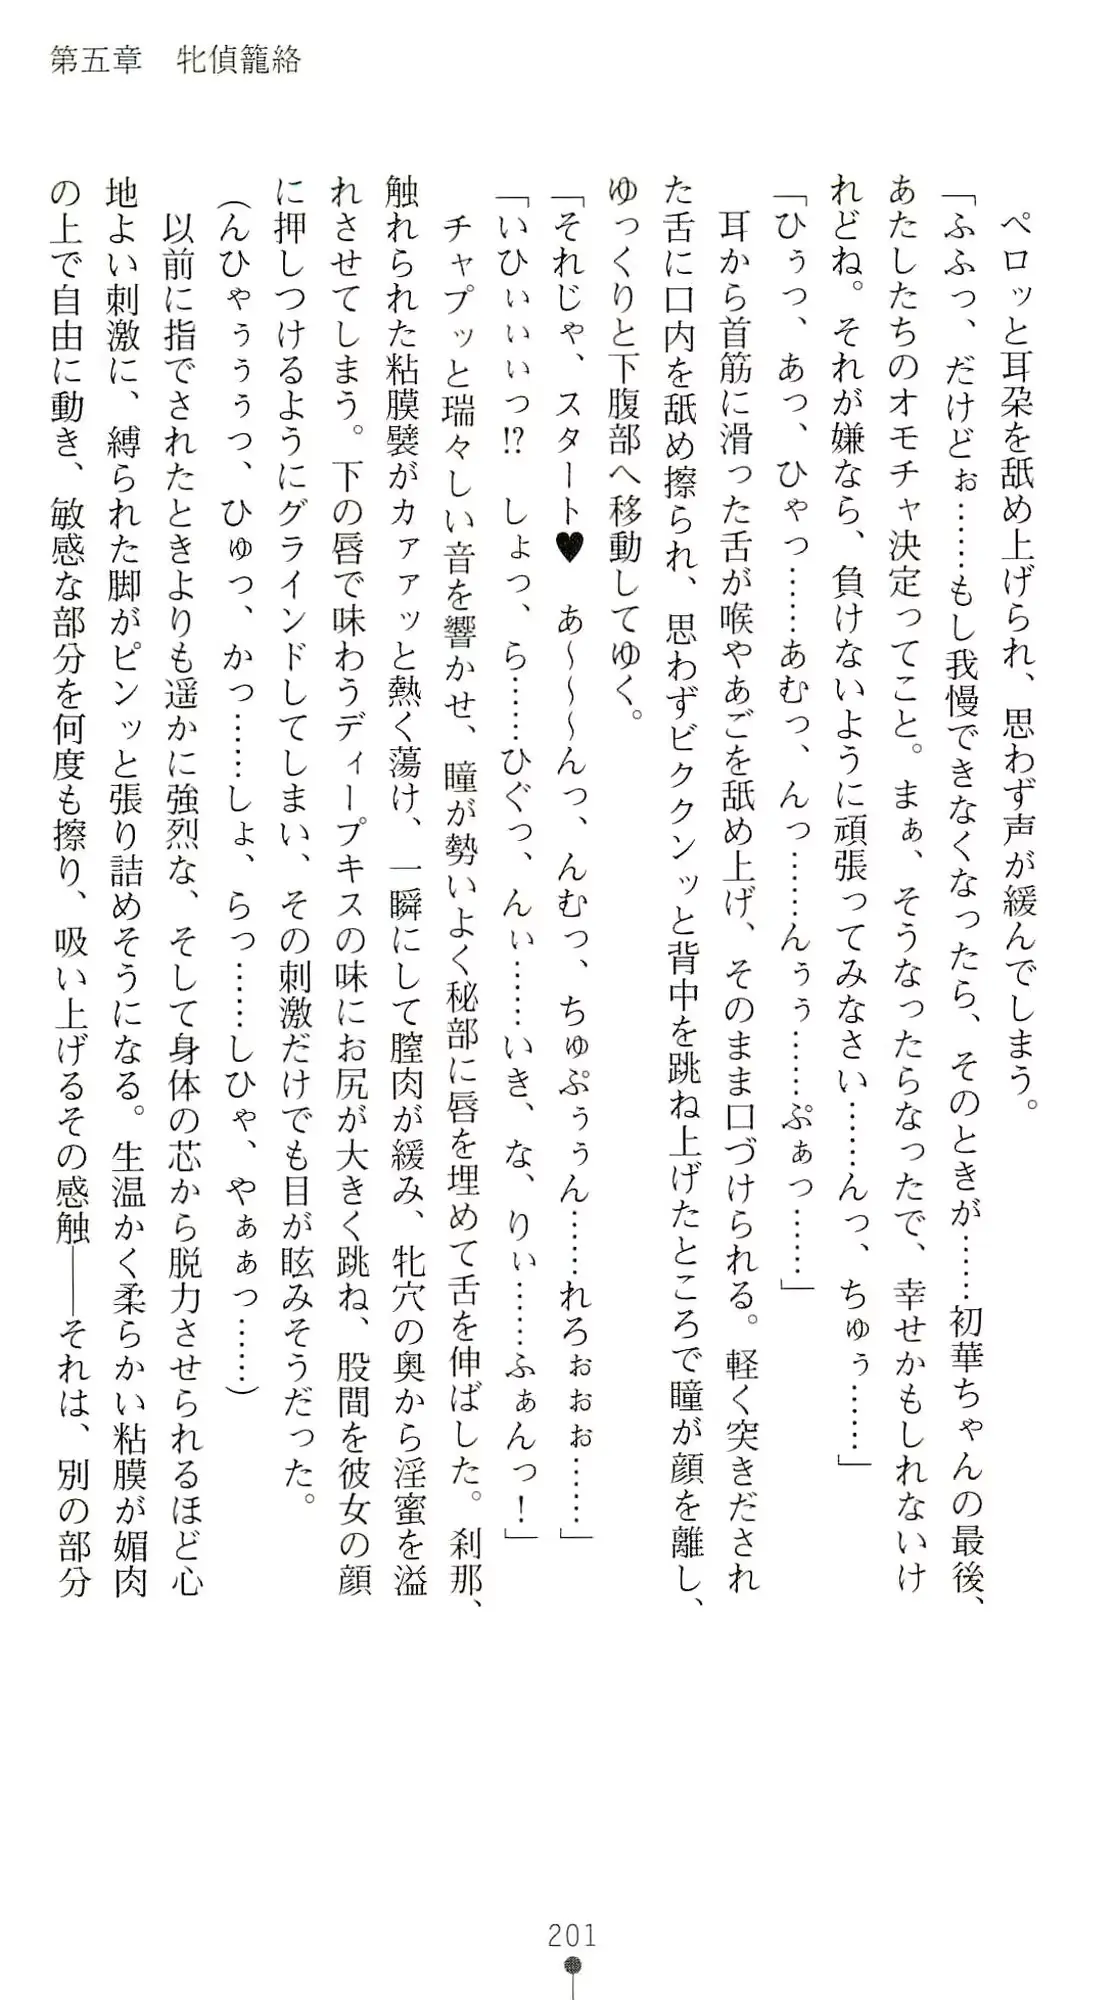 第五章　牝偵籠絡
ペロッと耳朶を舐め上げられ、思わず声が緩んでしまう。
「ふふっ、だけどぉ……もし我慢できなくなったら、そのときが……初華ちゃんの最後、
あたしたちのオモチャ決定ってこと。まぁ、そうなったらなったで、幸せかもしれないけ
れどね。それが嫌なら、負けないように頑張ってみなさい……んっ、ちゅぅ……」
「ひぅっ、あっ、ひゃっ……あむっ、んっ……んぅぅ……ぷぁっ……」
耳から首筋に滑った舌が喉やあごを舐め上げ、そのまま口づけられる。軽く突きだされ
た舌に口内を舐め擦られ、思わずビククンッと背中を跳ね上げたところで瞳が顔を離し、
ゆっくりと下腹部へ移動してゆく。
「それじゃ、スタート♥　あ～～～んっ、んむっ、ちゅぷぅぅん……れろぉぉぉ……」
「いひぃぃぃっ!?　しょっ、ら……ひぐっ、んぃ……いき、な、りぃ……ふぁんっ！」
チャプッと瑞々しい音を響かせ、瞳が勢いよく秘部に唇を埋めて舌を伸ばした。刹那、
触れられた粘膜襞がカァァッと熱く蕩け、一瞬にして膣肉が緩み、牝穴の奥から淫蜜を溢
れさせてしまう。下の唇で味わうディープキスの味にお尻が大きく跳ね、股間を彼女の顔
に押しつけるようにグラインドしてしまい、その刺激だけでも目が眩みそうだった。
（んひゃぅぅぅっ、ひゅっ、かっ……しょ、らっ……しひゃ、やぁぁっ……）
以前に指でされたときよりも遥かに強烈な、そして身体の芯から脱力させられるほど心
地よい刺激に、縛られた脚がピンッと張り詰めそうになる。生温かく柔らかい粘膜が媚肉
の上で自由に動き、敏感な部分を何度も擦り、吸い上げるその感触――それは、別の部分
201